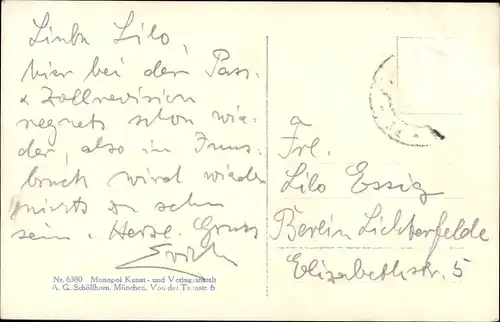 Liebe Lilo,
hier bei der Pass-
& Zollrevision
regnets schon wie-
der, also in Inns-
bruck wird wieder
nichts zu sehn
sein. Herzl. Gruss
Erich
Nr. 6380 Monopol Kunst- und Verlagsanstalt
A. G. Schöllhorn, München, Von der Tannstr. 6
Frl.
Lilo Essig
Berlin Lichterfelde
Elisabethstr. 5